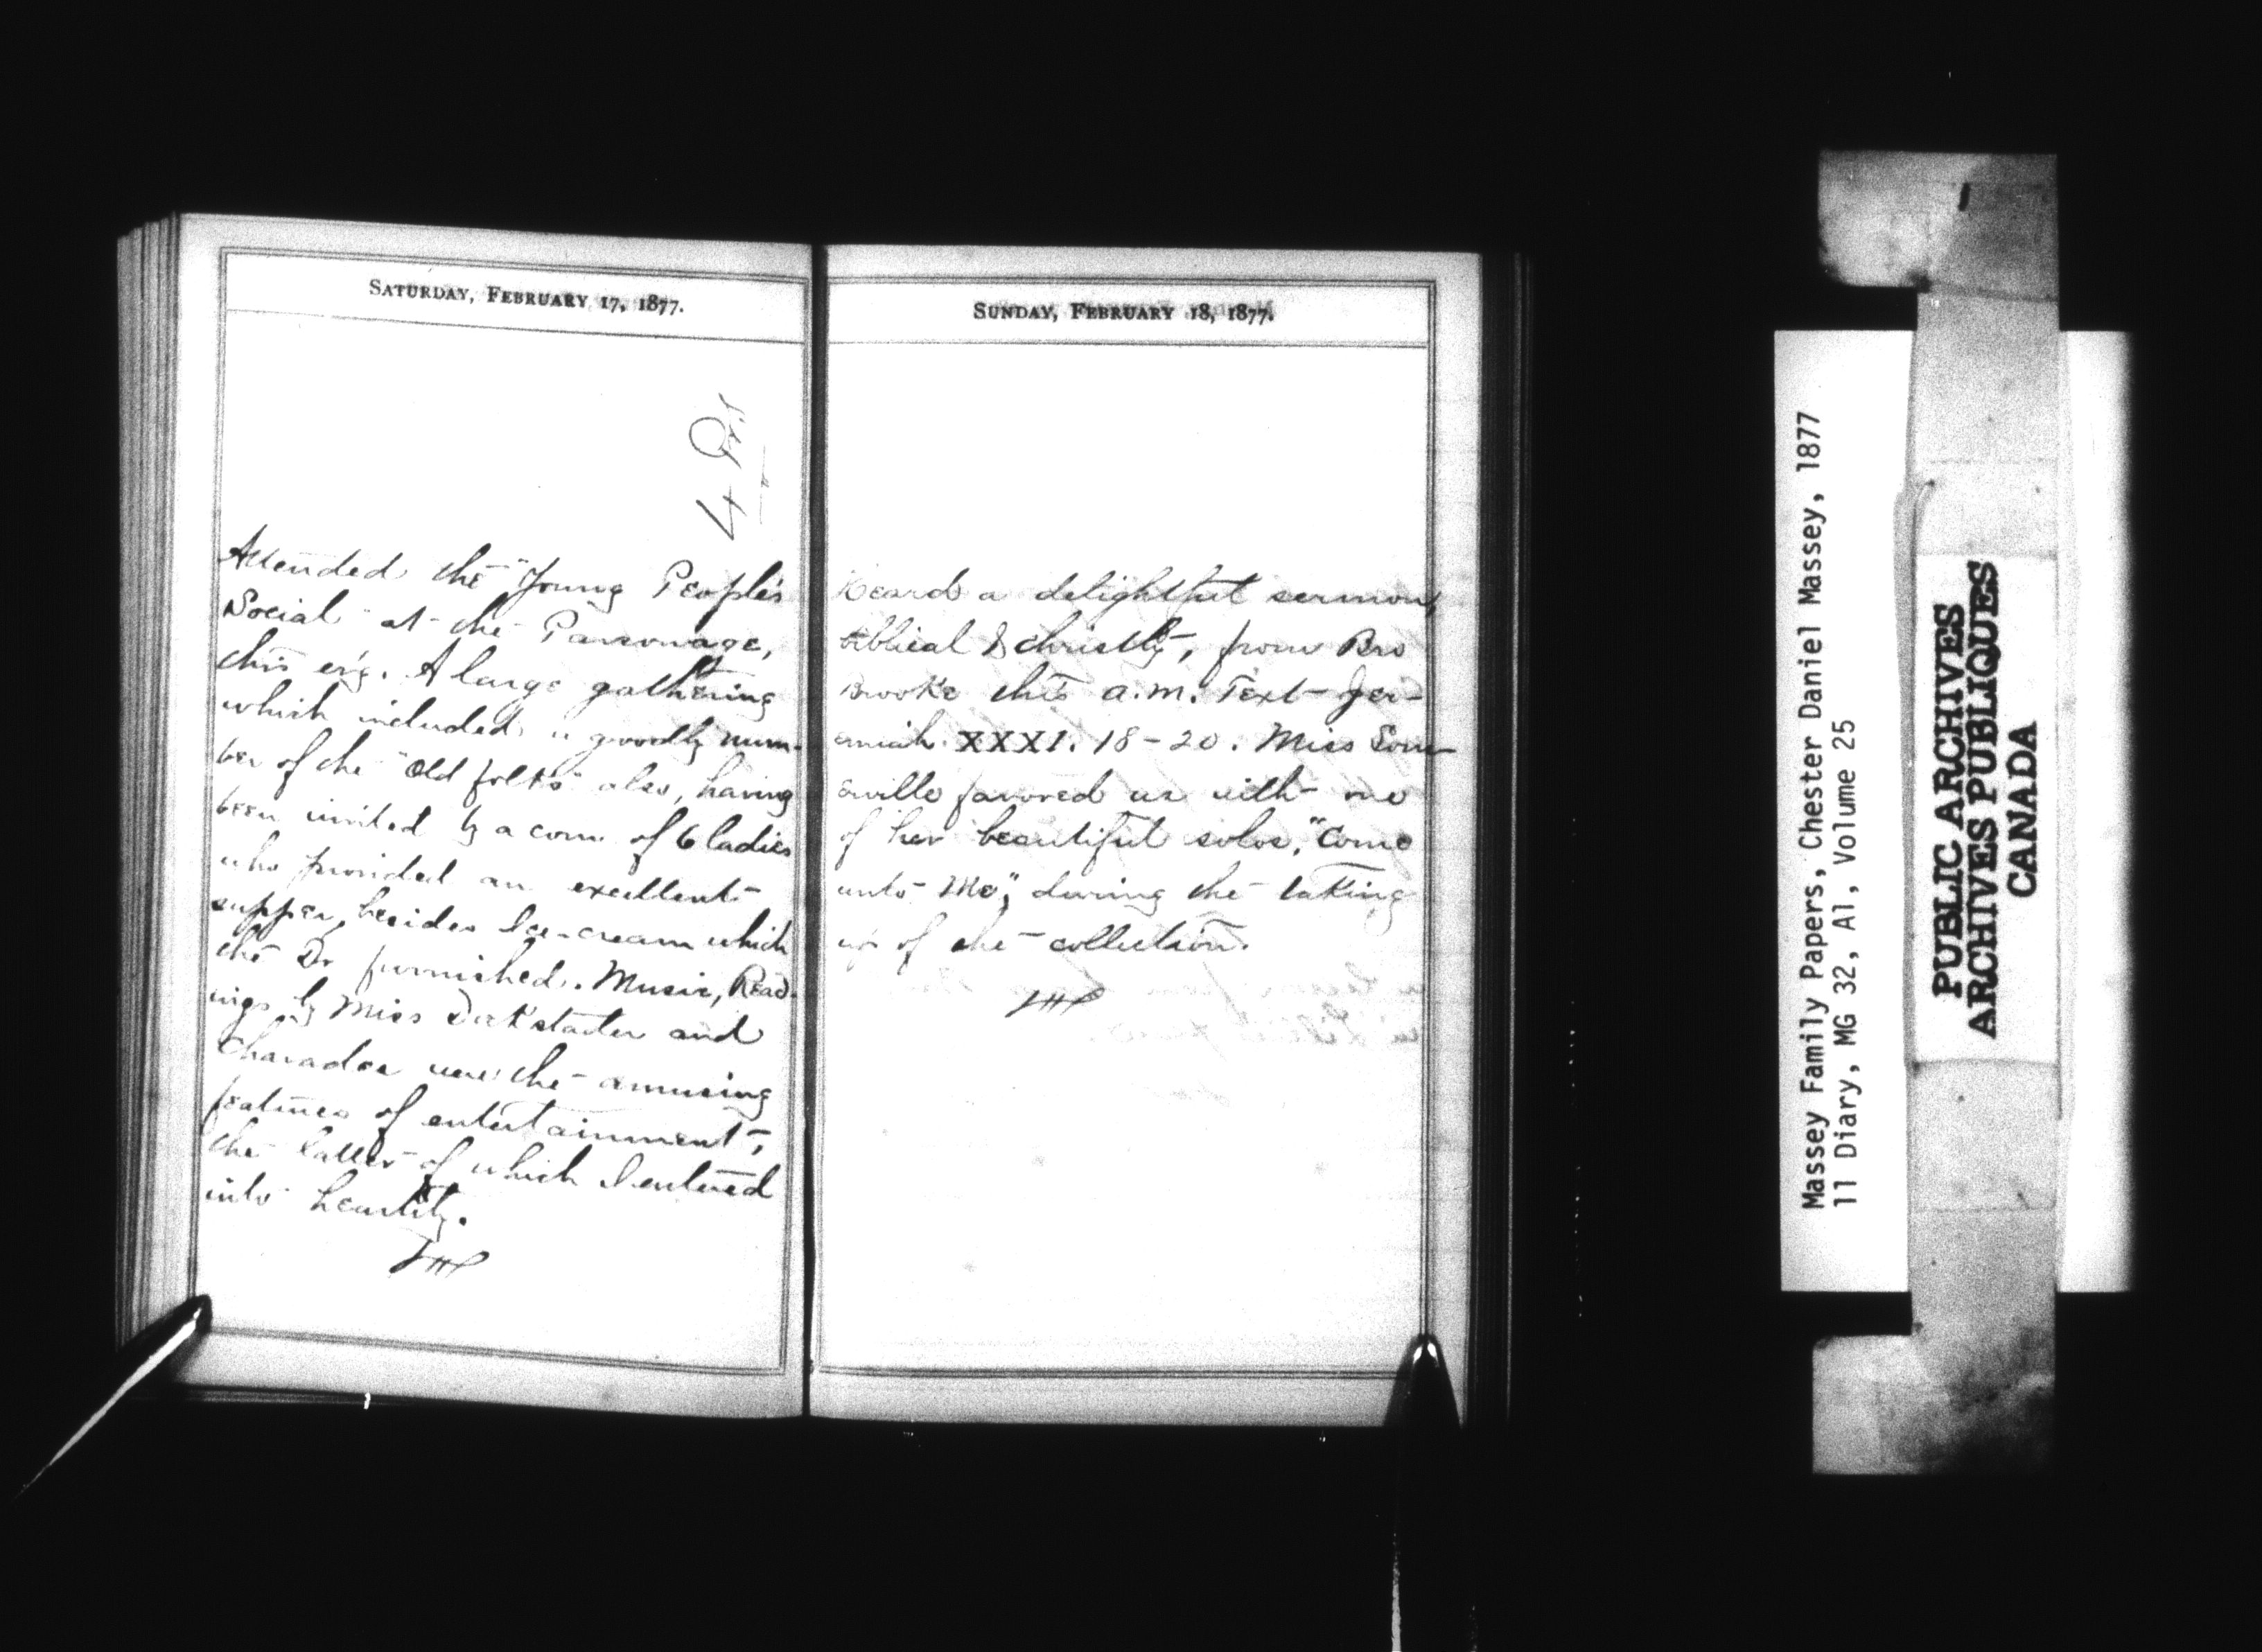 SATURDAY, FEBRUARY 17, 1877.
Attended the "Young People's
Social" at the Parsonage,
this ev'g. A large gathering
which included a goodly num-
ber of the "old folks" also, having
been invited by a com of 6 ladies
who provided an excellent
supper, besides Ice-cream which
the Dr furnished. Music, Read-
ings by Miss Dockstader and
Charades were the amusing
features of entertainment,
the latter of which I entered
into heartily.
SUNDAY, FEBRUARY 18, 1877.
Heard a delightful sermon,
biblical & christly, from Bro
Brooke this a.m. Text Jer-
emiah XXXI. 18-20. Miss Som-
erville favored us with one
of her beautiful solos, "Come
unto Me", during the taking
up of the collection.
Massey Family Papers, Chester Daniel Massey, 1877
11 Diary, MG 32, A1, Volume 25
PUBLIC ARCHIVES
ARCHIVES PUBLIQUES
CANADA